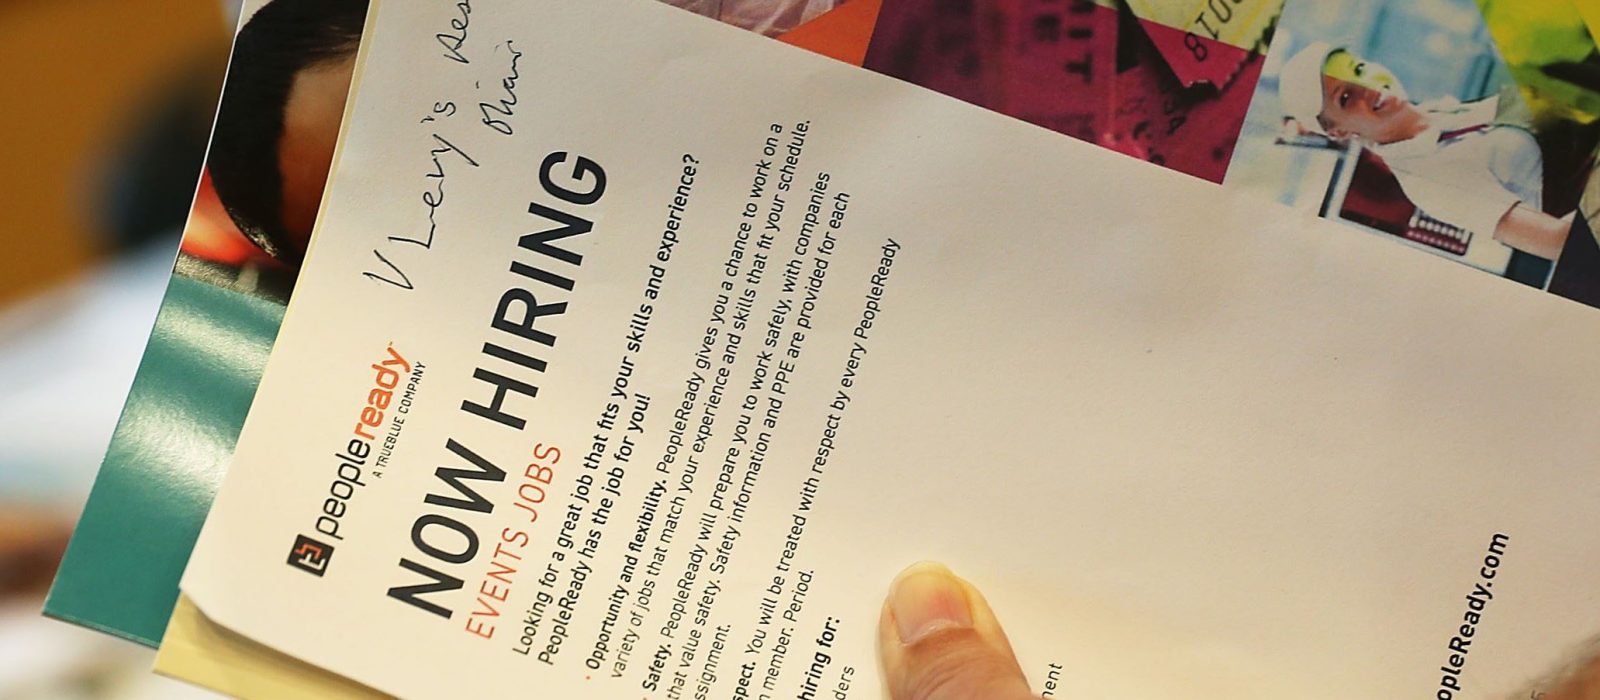 V Levy's
peopleready™
A TRUEBLUE COMPANY
NOW HIRING
EVENTS JOBS
Looking for a great job that fits your skills and experience?
PeopleReady has the job for you!
· Opportunity and flexibility. PeopleReady gives you a chance to work on a
variety of jobs that match your experience and skills that fit your schedule.
· Safety. PeopleReady will prepare you to work safely, with companies
that value safety. Safety information and PPE are provided for each
ssignment.
spect. You will be treated with respect by every PeopleReady
member. Period.
hiring for:
ders
ment
opleReady.com